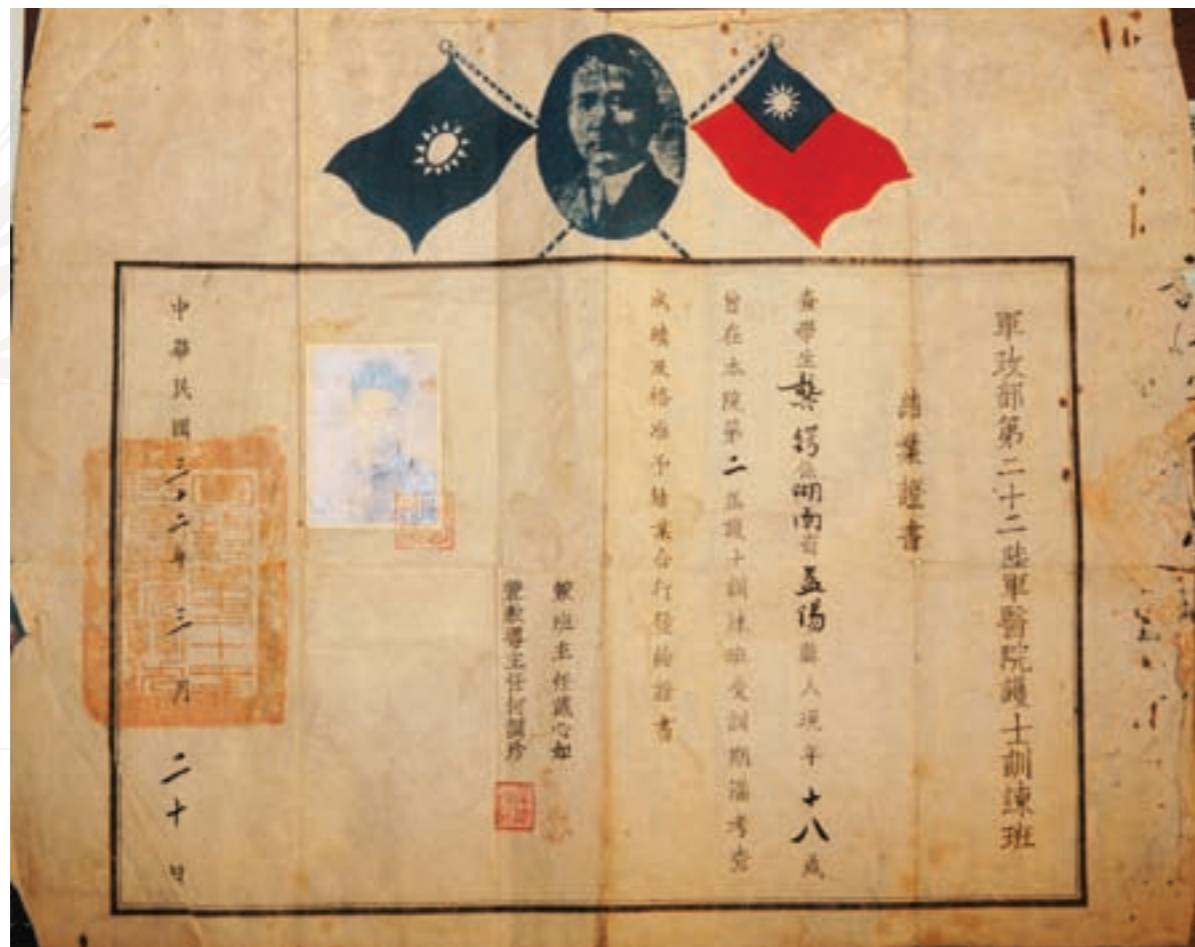 軍政部第二十二陸軍醫院護士訓練班
結業證書
查學生龔鍔係湖南省益陽縣人現年十八歲
曾在本院第二届護士訓練班受訓期滿考查
成績及格准予結業合行發給證書
兼班主任戴心如
兼教導主任何
中華民國三十二年三月二十日